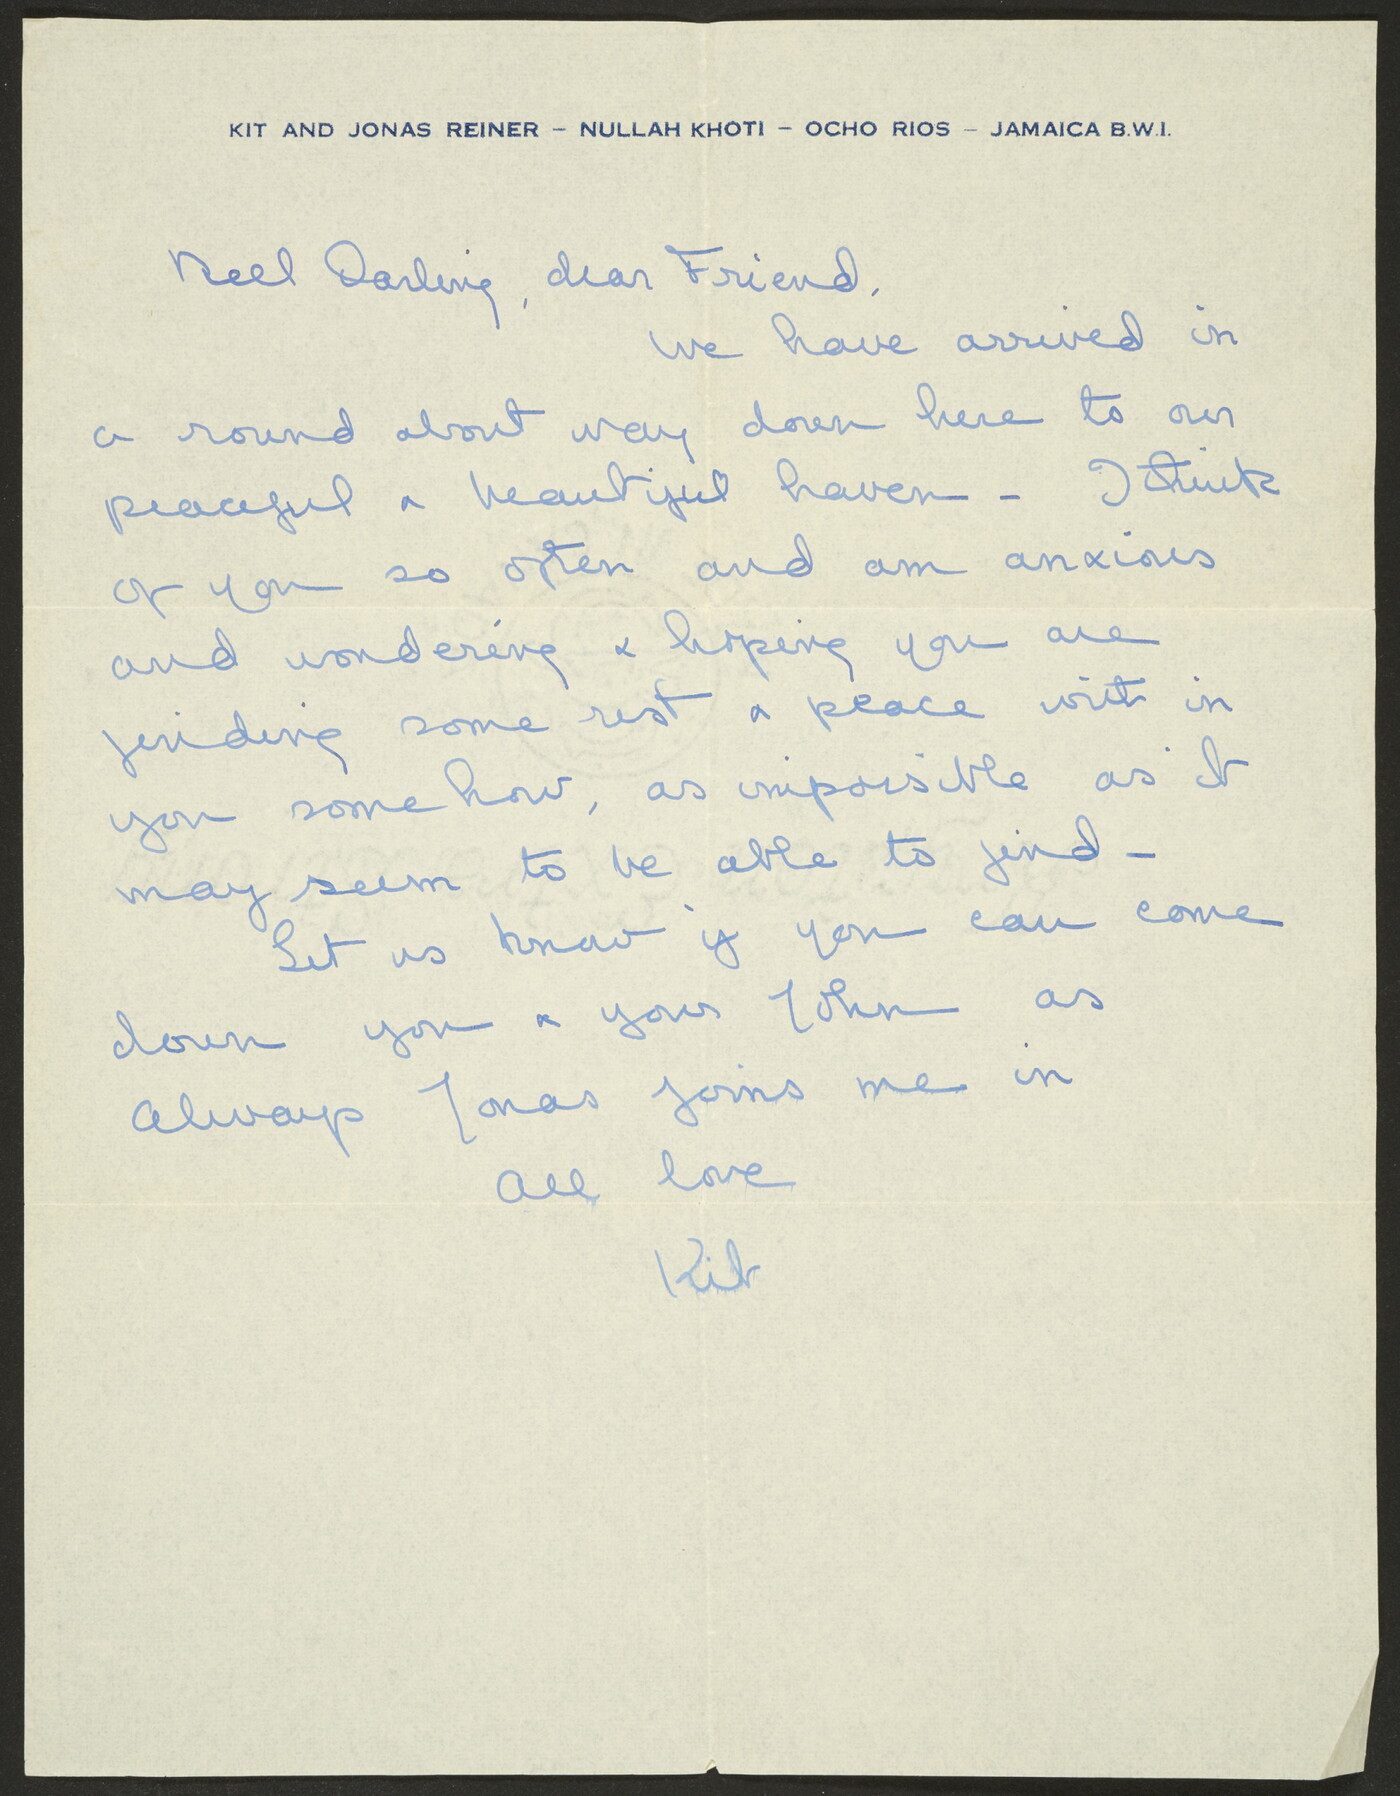 KIT AND JONAS REINER – NULLAH KHOTI – OCHO RIOS – JAMAICA B.W.I.
Neel Darling, dear Friend,
We have arrived in
a round about way down here to our
peaceful & beautiful haven – I think
of you so often and am anxious
and wondering & hoping you are
finding some rest & peace with in
you some how, as impossible as it
may seem to be able to find –
Let us know if you can come
down you & your John as
Always Jonas joins me in
All love
Kit